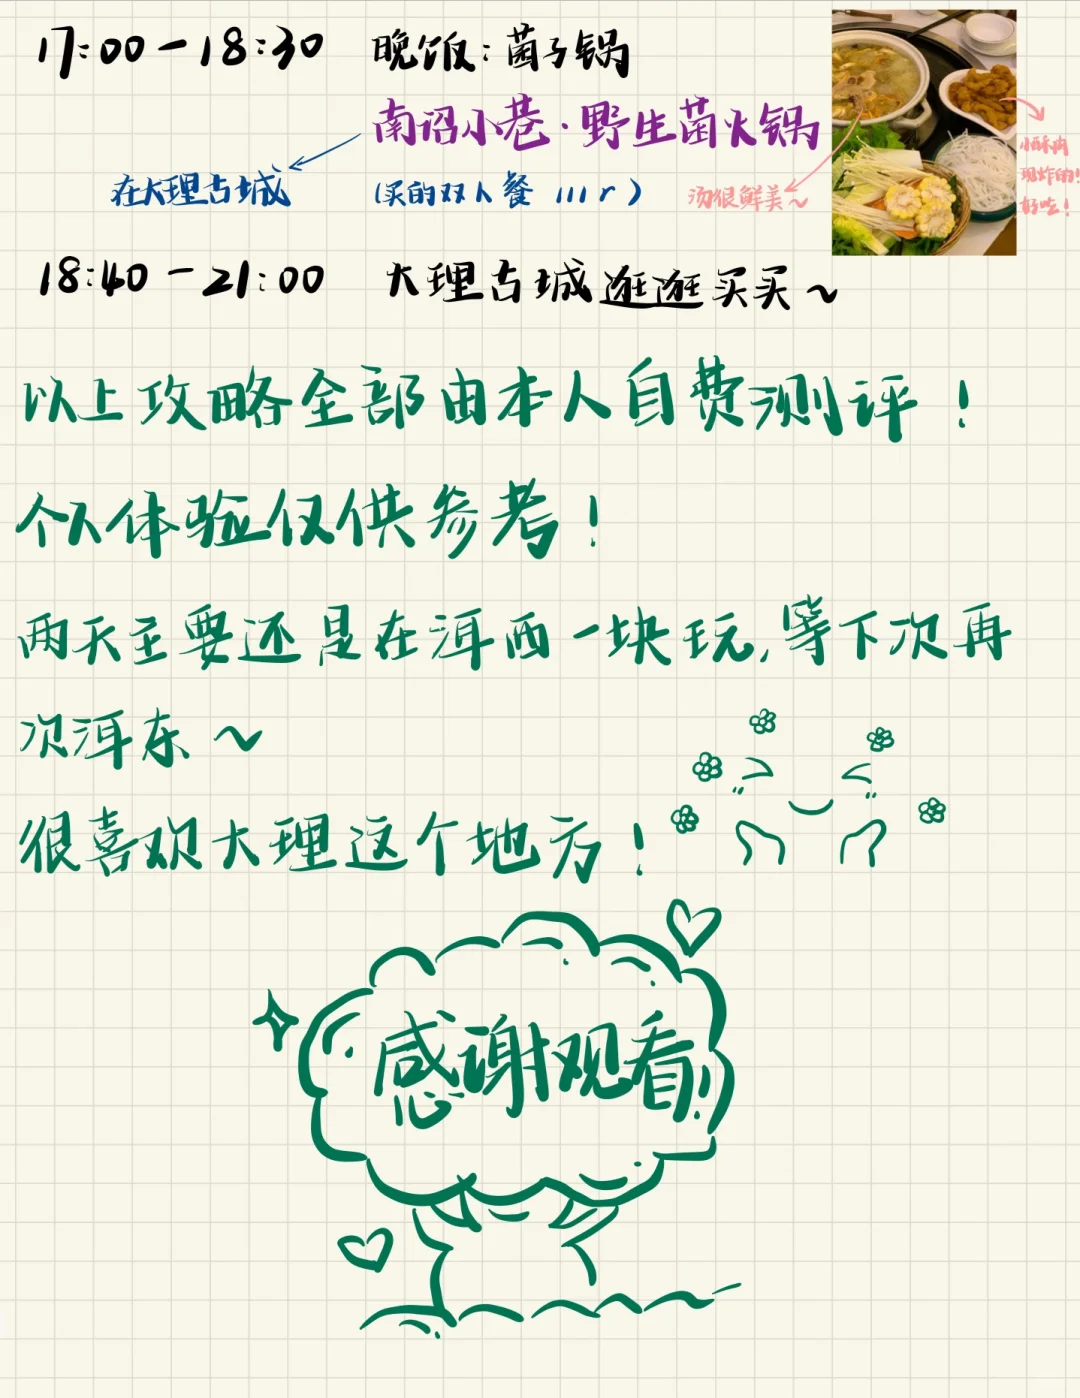 17:00-18:30 晚饭:菌子锅
南诏小巷·野生菌火锅
在大理古城
(买的双人餐 111r)
汤很鲜美~
小酥肉
现炸的!
好吃!
18:40-21:00 大理古城逛逛买买~
以上攻略全部由本人自费测评!
个人体验仅供参考!
两天主要还是在洱西一块玩,等下次再
次洱东~
很喜欢大理这个地方!
感谢观看!